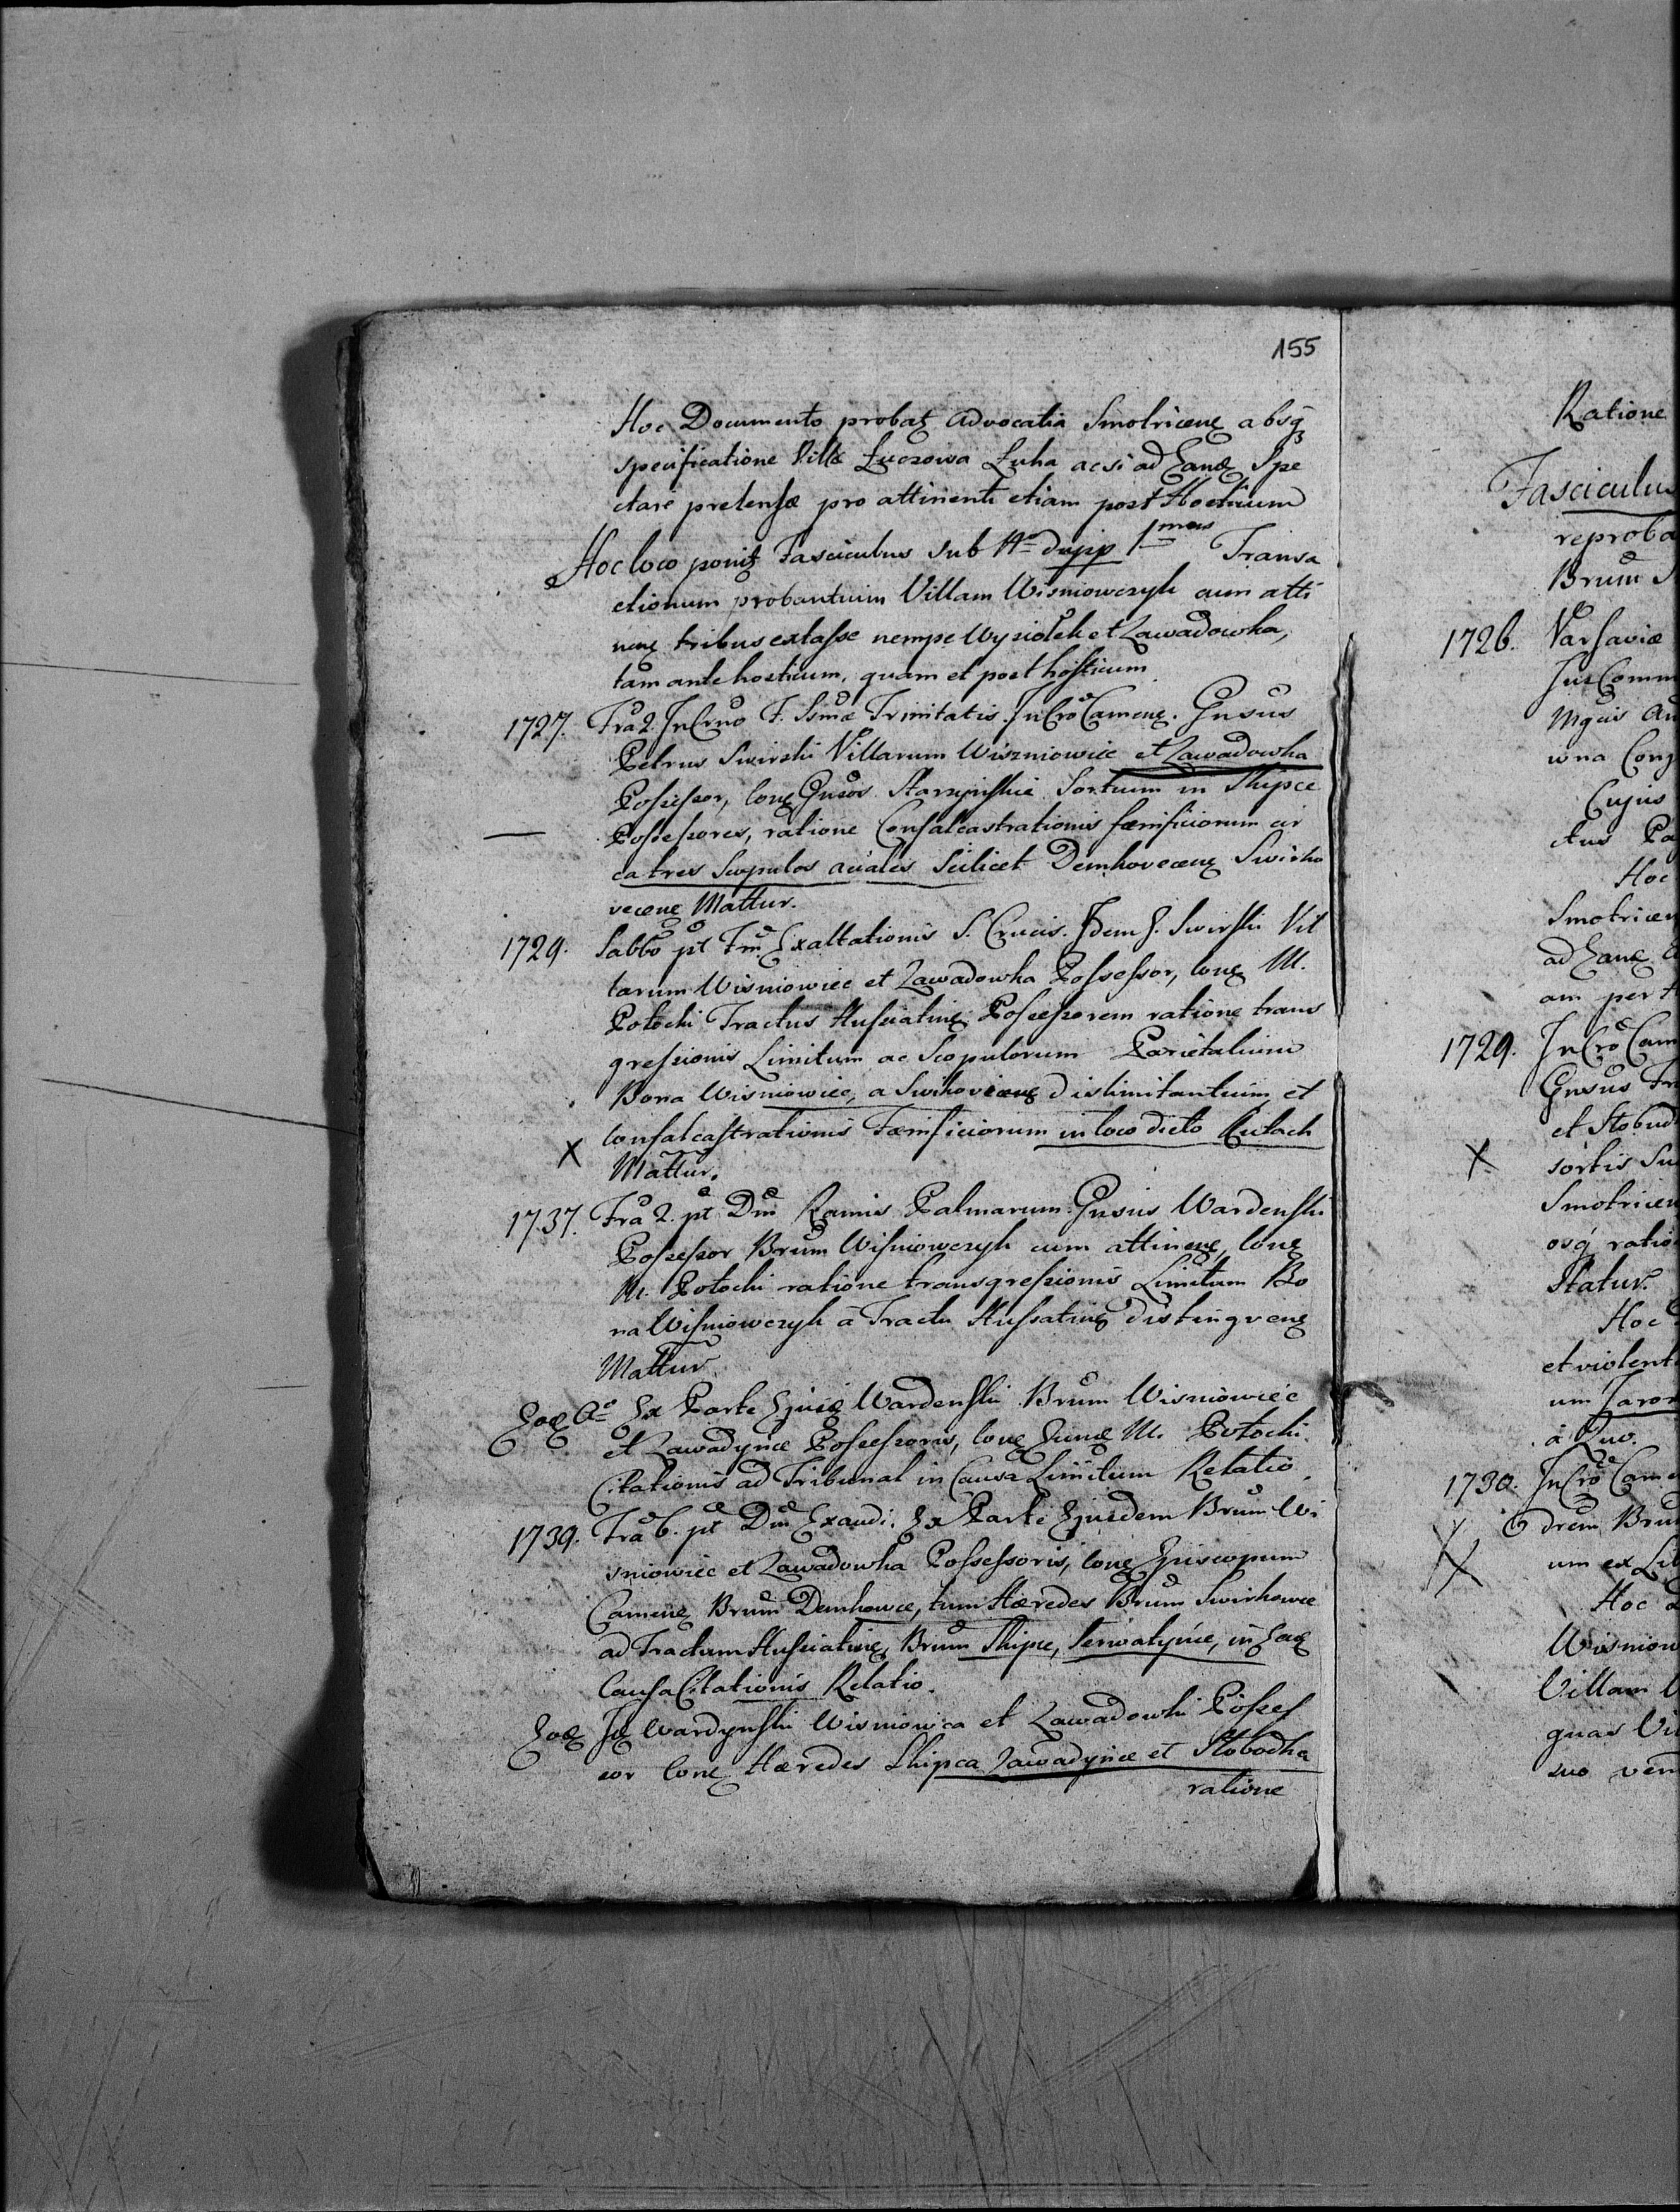 155
Hoc Documento probatꝫ advocatia Smotricenꝫ absqꝫ
specificatione Villæ Luczowa Luka acsi ad Eandꝫ Spe
ctare pretensæ pro attinenti etiam post Hosticum
Hoc loco ponitꝫ Fasciculus sub Transa
ctionum probantium Villam Wisniowczyk cum atti
nenꝫ tribus extasse nempe Wysiołek et Zawadowka,
tam ante hosticum, quam et post hosticum
1727. Fra 2. In Crno F. Ssmæ Trinitatis. In Cro Camenꝫ. Gnsus
Petrus Swirski Villarum Wiszniowiec et Zawadowka
Possessor, conꝫ Gnsos Starzynskie Sortium in Skipce
Possessores, ratione Confalcastrationis fænificiorum cir
ca tres Scopulos acialis Scilicet Demkovecenꝫ Swirko
vecenꝫ Mattur.
1729. Sabbo pt Fm Exaltationis S. Crucis. Idem G. Swirski Vil
larum Wisniowiec et Zawadowka Possessor, conꝫ M.
Potocki Tractus Husiatinꝫ Possessorem ratione trans
gressionis Limitum ac Scopulorum Parietalium
Bona Wisniowiec, a Swirkoviecenꝫ dislimitantium, et
confalcastrationis Fænificiorum in loco dicto Rutach
X Mattur.
1737. Fra 2. pt Dm Ramis Palmarum. Gnsus Wardenski
Possessor Brum Wisniowczyk cum attinenꝫ, conꝫ
M. Potocki ratione transgressionis Limitum Bo
na Wisniowczyk à Tractu Hussatinꝫ distingvenꝫ
Mattur
Eodꝫ Ao Ex Parte Ejusdꝫ Wardenski Brum Wisniowiec
et Zawadynce Possessoris, conꝫ Eundꝫ M. Potocki
Citationis ad Tribunal in Causa Limitum Relatio.
1739. Fra 6. pt Dm Exaudi. Ex Parte Ejusdem Brum Wi
sniowiec et Zawadowka Possessoris, conꝫ Episcopum
Camenꝫ Brum Demkowce, tum Hæredes Brum Swirkowce
ad Tractum Husiatinꝫ, Brum Skipce, Serwatynce, in Eadꝫ
Causa Citationis Relatio.
Eodꝫ Idꝫ Wardynski Wisniowca et Zawadowki Posses
sor conꝫ Hæredes Skipca Zawadynce et Słobodka
ratione
Ratione
Fasciculus
reproba
Brum S
1726. Varsaviæ
Jus Comm
Cujus
ctus Pa
Hoc
Smotricen
ad Eanꝫ
am per
1729. In Cro Cam
Gnsus
X sortis
Smotricen
osq ratio
Statur.
Hoc
et violent
um
à Quo.
1730. In Cro Cam
X um ex
Hoc
Wisniow
Villam
quas
suo